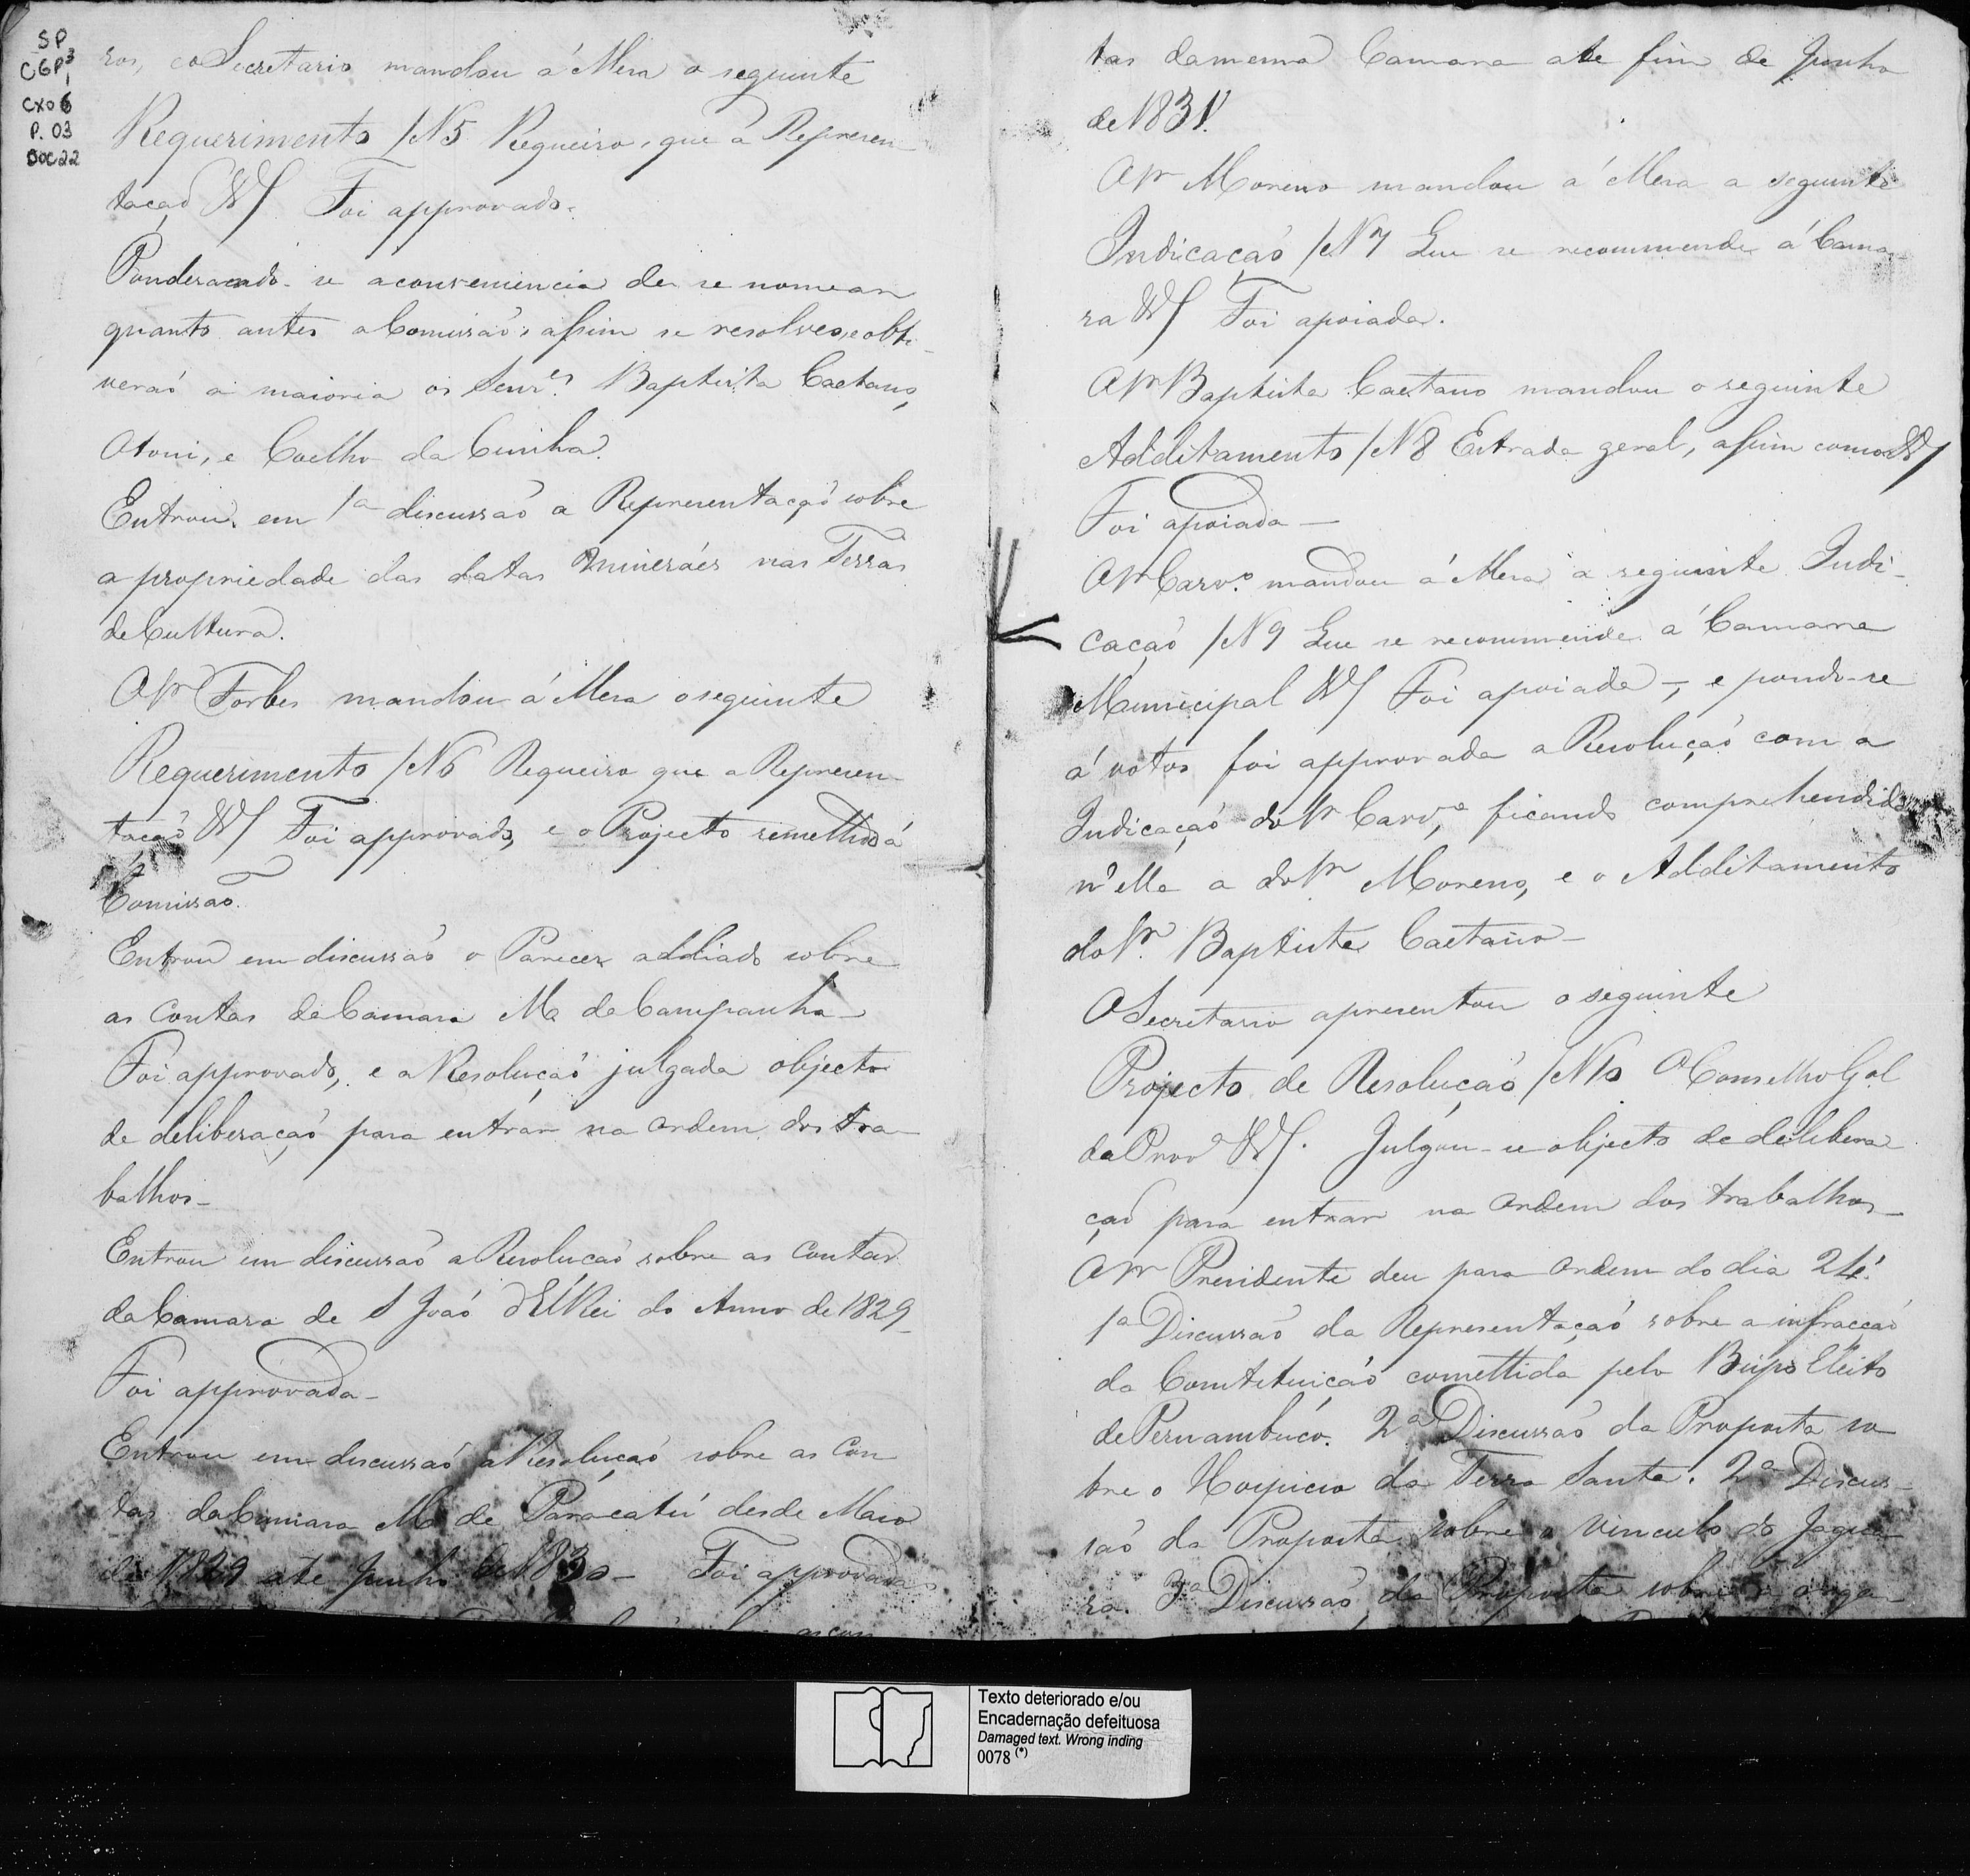 SP
CGP³,
CX06
P. 03
DOC22
ros, e o Secretario mandou á Mesa o seguinte
Requerimento /N5 Requeiro, que a Represen-
taçaõ &/ Foi approvado.
Ponderando-se a conveniencia de se nomear
quanto antes a Comissaõ, assim se resolveo, e obti-
veraõ a maioria os Senr.es Baptista Caetano,
Otoni, e Coelho da Cunha.
Entrou em 1a discussaõ a Representaçaõ sobre
a propriedade das datas mineráes nas Terras
de Cultura.
O Sr Forbes mandou á Mesa o seguinte
Requerimento /N6 Requeiro que a Represen-
taçaõ &/ Foi approvado, e o Projecto remettido á
Comissaõ.
Entrou em discussaõ o Parecer addiado sobre
as Contas da Camara Ml da Campanha-
Foi approvado, e a Resoluçaõ julgada objecto
de deliberaçaõ para entrar na ordem dos tra-
balhos-
Entrou em discussaõ a Resoluçaõ sobre as Contas
da Camara de S Joaõ d'ElRei do Anno de 1829-
Foi approvada-
Entrou em discussaõ a Resoluçaõ sobre as Con-
tas da Camara Ml de Paracatú desde Maio
de 1829 ate Junho de 1830- Foi approvada
as con
tas da mesma Camara ate fim de Junho
de 1831.
O Sr Moreno mandou á Mesa a seguinte
Indicaçaõ /N7 Que se recommende á Cama-
ra &/ Foi apoiada.
O Sr Baptista Caetano mandou o seguinte
Additamento /N8 Estrada geral, assim como &/
Foi apoiada-
O Sr Carv.o mandou á Mesa a seguinte Indi-
caçaõ /N9 Que se recommende á Camara
Municipal &/ Foi apoiada-, e pondo-se
á votos foi approvada a Resoluçaõ com a
Indicaçaõ do Sr Carv.o, ficando comprehendida
n'ella a do Sr Moreno, e o Additamento
do Sr. Baptista Caetano-
O Secretario apresentou o seguinte
Projecto de Resoluçaõ /N10 O Conselho Gal
da Prov &/. Julgou-se objecto de delibera-
çaõ para entrar na ordem dos trabalhos-
O Sr Presidente deu para ordem do dia 24.
1a Discussaõ da Representaçaõ sobre a infracçaõ
da Constituiçaõ comettida pelo Bispo Eleito
de Pernambuco. 2a Discussaõ da Proposta so-
bre o Hospicio da Terra Santa. 2a Discus-
saõ da Proposta sobre o vinculo do Jagua-
ra. 3a Discussaõ da Proposta sobre a orga-
Texto deteriorado e/ou
Encadernação defeituosa
Damaged text. Wrong inding
0078 (*)